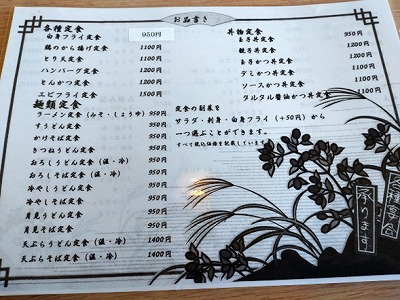 お品書き
各種定食
白身フライ定食 950円
鶏のから揚げ定食 1100円
とり天定食 1100円
ハンバーグ定食 1200円
とんかつ定食 1200円
エビフライ定食 1500円
麺類定食
ラーメン定食（みそ・しょうゆ） 950円
すうどん定食 950円
かけそば定食 950円
きつねうどん定食 950円
おろしうどん定食（温・冷） 950円
おろしそば定食（温・冷） 950円
冷やしうどん定食 950円
冷やしそば定食 950円
月見うどん定食 950円
月見そば定食 950円
天ぷらうどん定食（温・冷） 1400円
天ぷらそば定食（温・冷） 1400円
丼物定食
玉子丼定食 950円
親子丼定食 1200円
玉子かつ丼定食 1200円
デミかつ丼定食 1100円
ソースかつ丼定食 1100円
タルタル醤油かつ丼定食 1200円
定食の副菜を
サラダ・刺身・白身フライ（＋50円）から
一つ選ぶことができます。
すべて税込価格を記載しています。
各種宴会
承ります